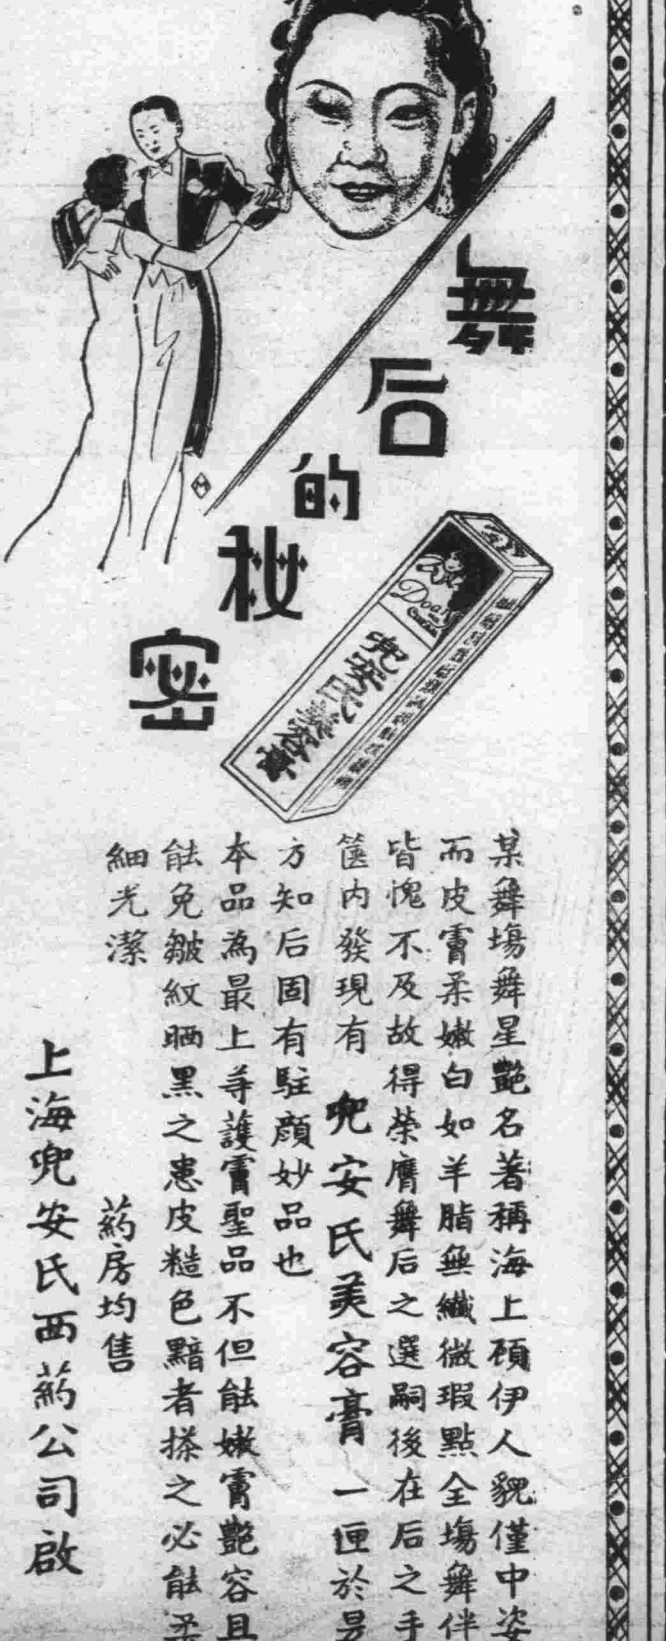 舞后的秘密
Doan's
兜安氏美容膏
某舞塲舞星艷名著稱海上顧伊人貌僅中姿
而皮膚柔嫩白如羊脂無纖微瑕點全塲舞伴
皆愧不及故得榮膺舞后之選嗣後在后之手
篋内發現有 兜安氏美容膏 一匣於是
方知后固有駐顔妙品也
本品為最上等護膚聖品不但能嫩膚艷容且
能免皺紋晒黑之患皮糙色黯者搽之必能柔
細光潔
葯房均售
上海兜安氏西葯公司啟